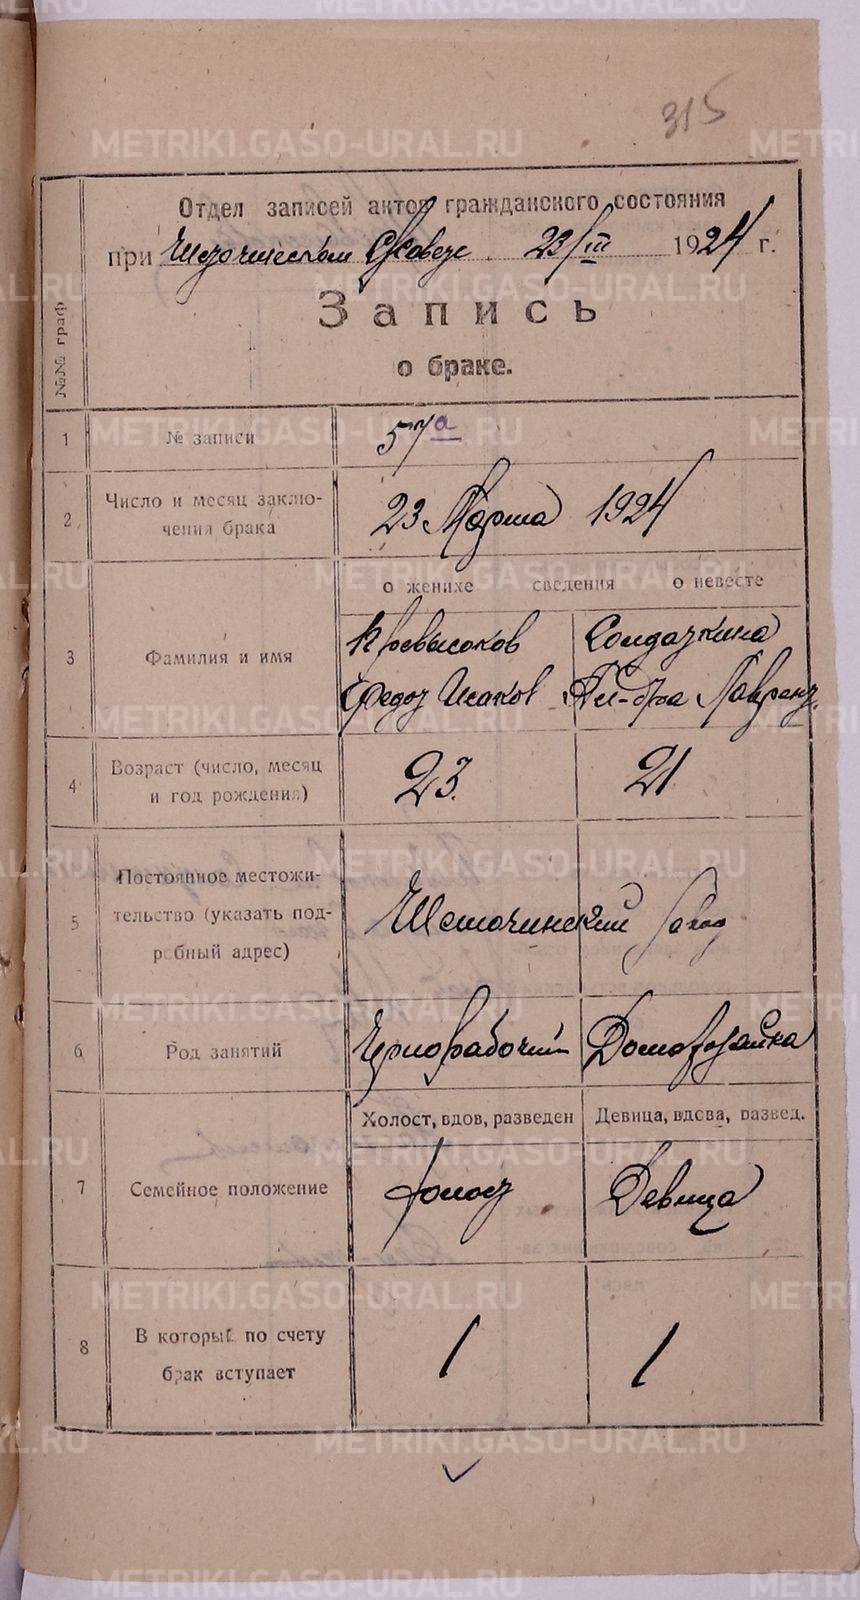 315
Отдел записей актов гражданского состояния
при С/Совете. 23/III 1924 г.
№№ граф
Запись
о браке.
1 № записи 57а
2 Число и месяц заклю-
чения брака 23 Марта 1924
о женихе сведения о невесте
3 Фамилия и имя
Солдаткина
Федот Исаков Лаврент.
4 Возраст (число, месяц
и год рождения) 23. 21
5 Постоянное местожи-
тельство (указать под-
робный адрес) завод
6 Род занятий Чернорабочий Домохозяйка
Холост, вдов, разведен Девица, вдова, развед.
7 Семейное положение Холост Девица
8 В который по счету
брак вступает 1 1
METRIKI.GASO-URAL.RU